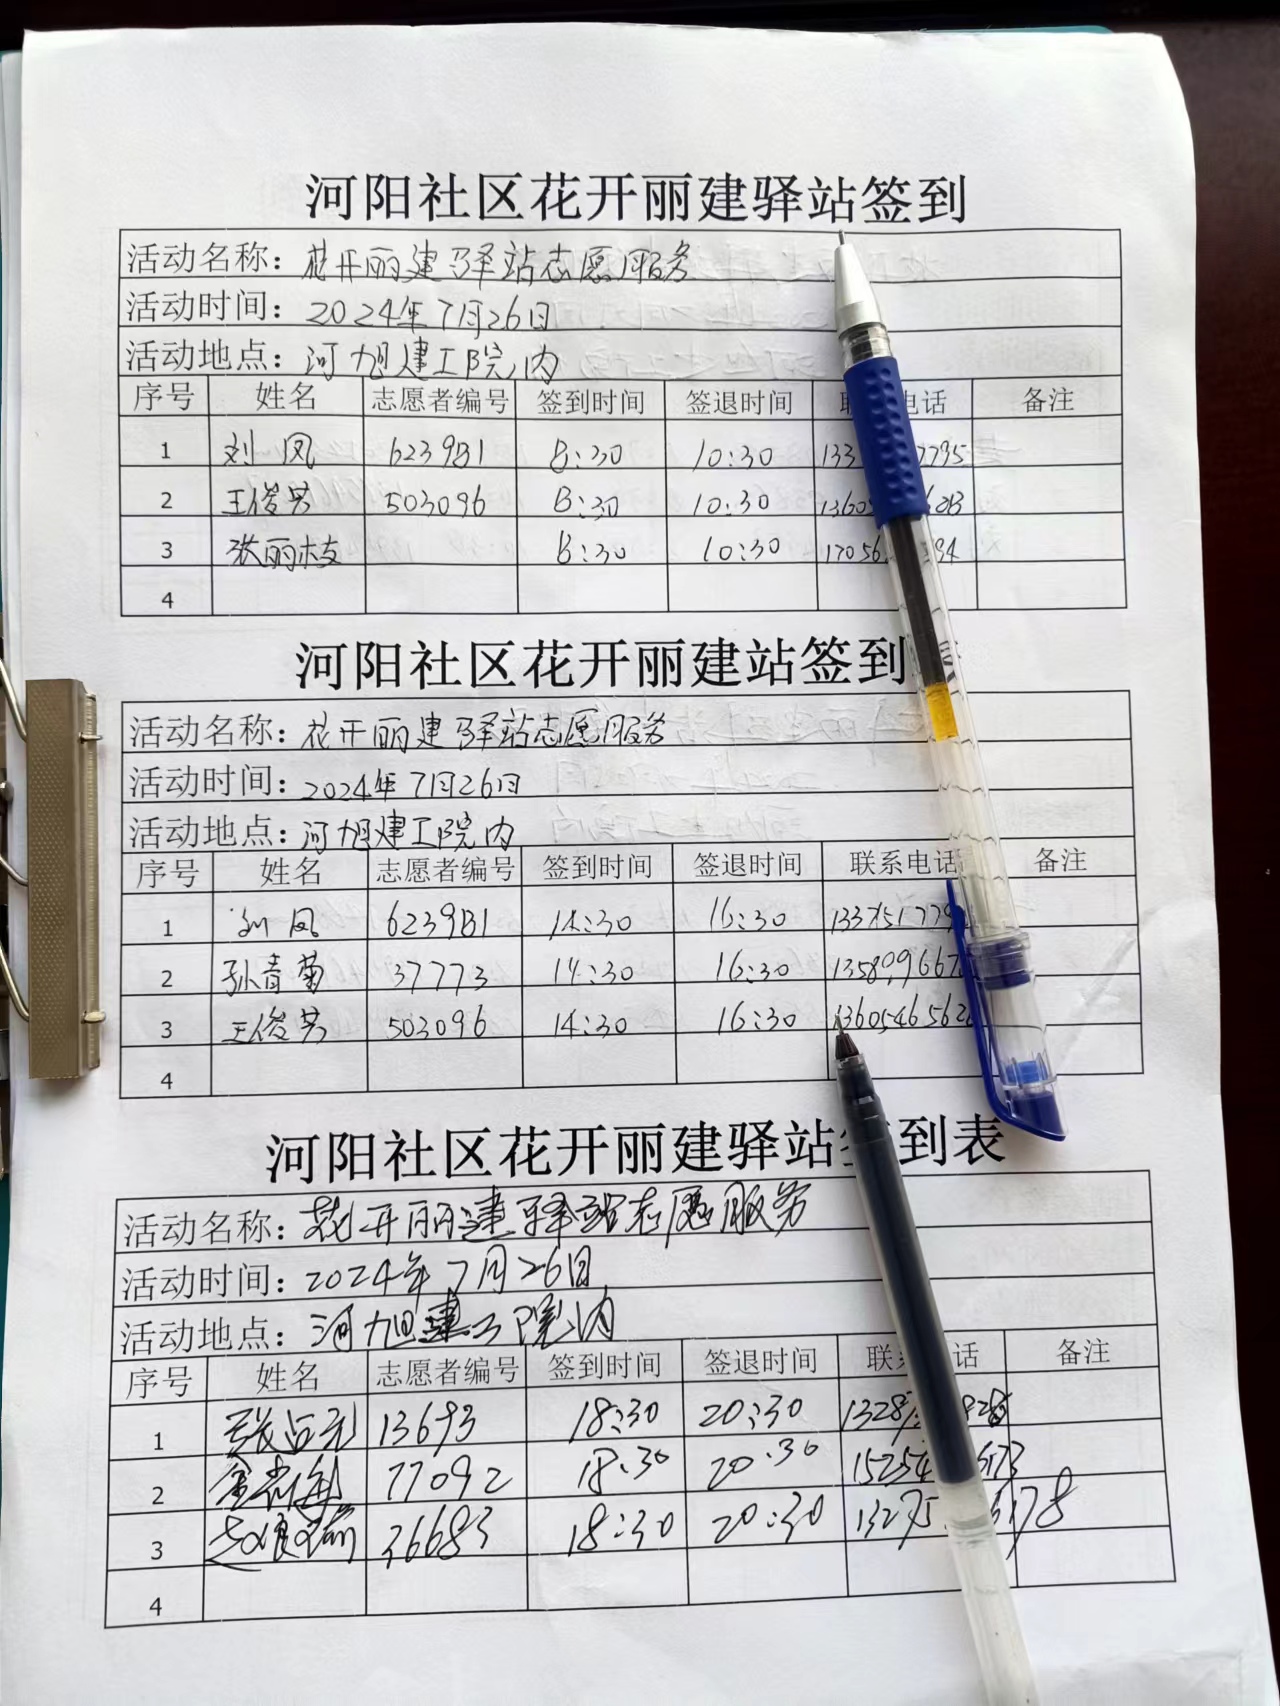 河阳社区花开丽建驿站签到
活动名称：花开丽建驿站志愿服务
活动时间：2024年7月26日
活动地点：河旭建工院内
序号 姓名 志愿者编号 签到时间 签退时间 联 电话 备注
1 刘凤 623981 8:30 10:30 133 7795
2 王俊芳 503096 8:30 10:30 1360 628
3 张丽枝 8:30 10:30 17056 94
4
河阳社区花开丽建站签到
活动名称：花开丽建驿站志愿服务
活动时间：2024年7月26日
活动地点：河旭建工院内
序号 姓名 志愿者编号 签到时间 签退时间 联系电话 备注
1 刘凤 623981 14:30 16:30 133751779
2 孙青菊 37773 14:30 16:30 135809667
3 王俊芳 503096 14:30 16:30 1360546562
4
河阳社区花开丽建驿站签到表
活动名称：花开丽建驿站志愿服务
活动时间：2024年7月26日
活动地点：河旭建工院内
序号 姓名 志愿者编号 签到时间 签退时间 联系 话 备注
1 13693 18:30 20:30 1328
2 77092 18:30 20:30 15254 173
3 36683 18:30 20:30 13275 178
4